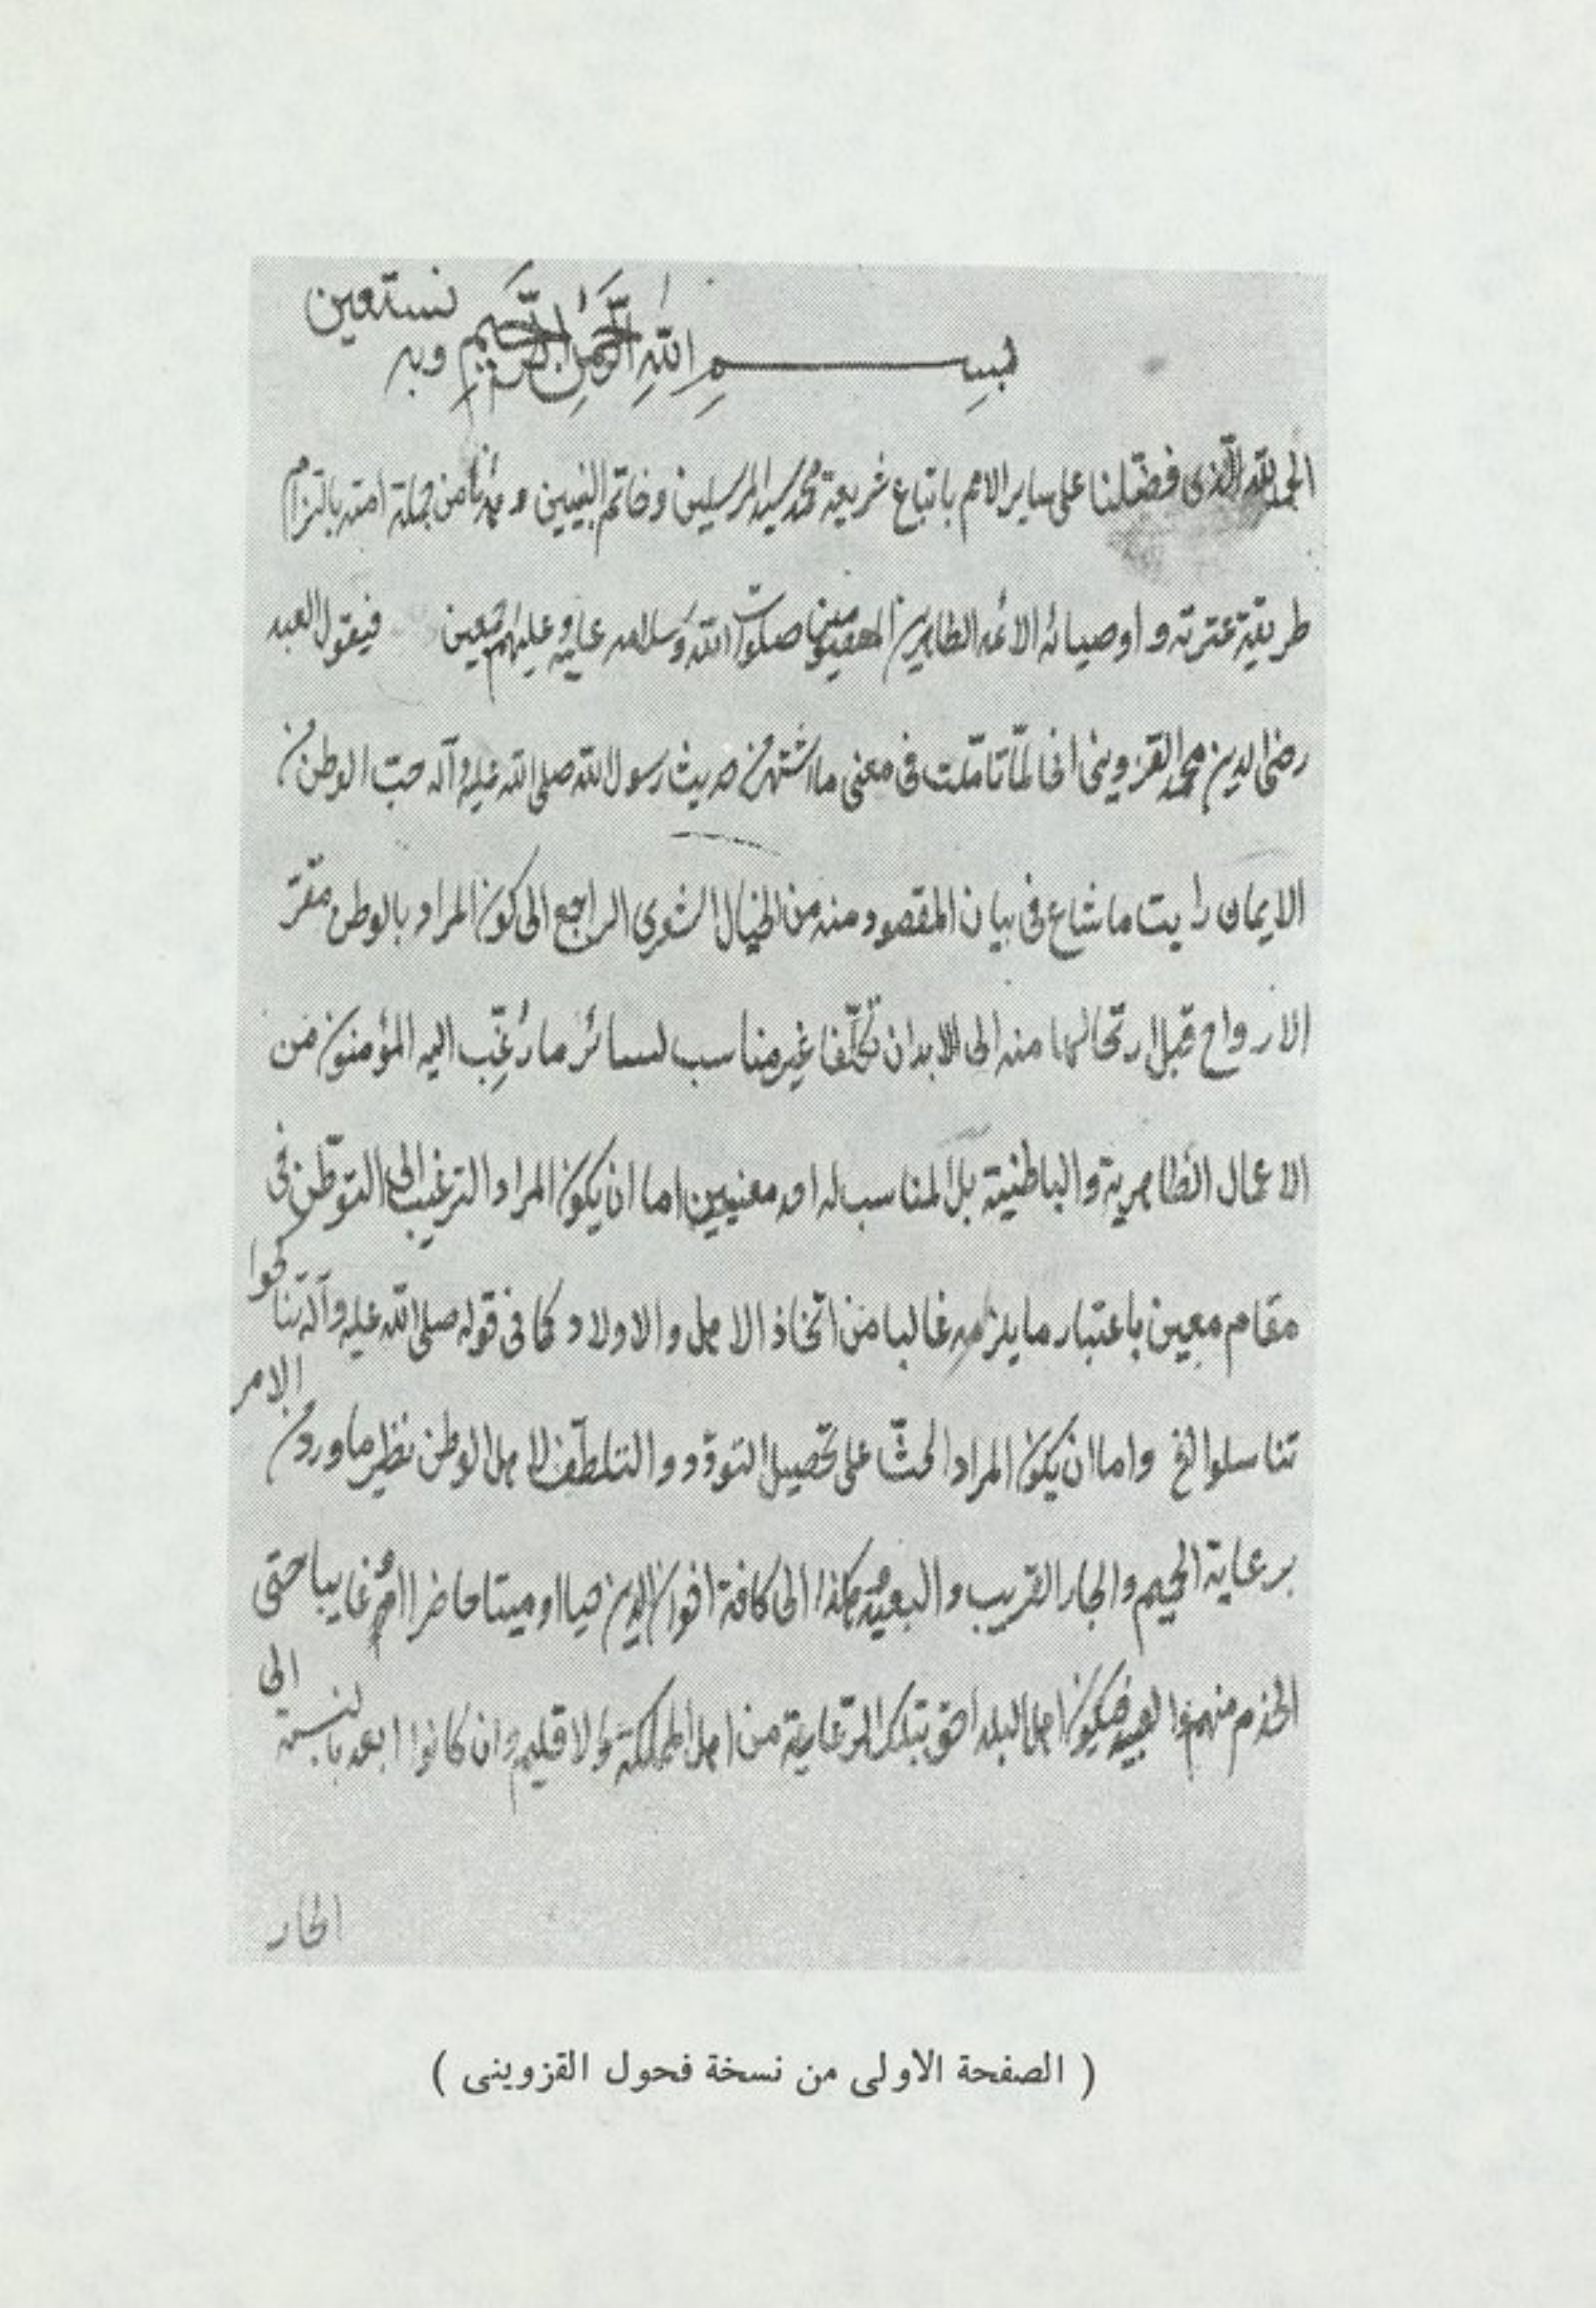 بسم الله الرحمن الرحيم وبه نستعين
الحمد لله الذى فضلنا على ساير الامم باتباع شريعة محمد سيد المرسلين وخاتم النبيين و من جملة امته بالتزام
طريقة عترته و اوصيائه الائمه الطاهرين المعصومين صلوات الله وسلامه عليه وعليهم اجمعين فيقول العبد
رضى الدين محمد القزوينى انى لمّا تامّلت فى معنى ما اشتهر من حديث رسول الله صلى الله عليه وآله حبّ الوطن من
الايمان رايت ما شاع فى بيان المقصود منه من الخيال الشعرى الراجع الى كون المراد بالوطن مقرّ
الارواح قبل ارتحالها منه الى الابدان تكلّفا غير مناسب لسائر ما رُغّب اليه المؤمنون من
الاعمال الظاهرية والباطنية بل المناسب له احد معنيين اما ان يكون المراد الترغيب الى التوطّن فى
مقام معين باعتبار ما يلزمه غالبا من اتخاذ الاهل والاولاد كما فى قوله صلى الله عليه وآله تناكحوا
تناسلوا الخ واما ان يكون المراد الحثّ على تحصيل التودّد والتلطّف لاهل الوطن نظير ما ورد من الامر
برعاية الحميم والجار القريب والبعيد هكذا الى كافة اخوان الدين حيا او ميتا حاضرا او غايبا حتى
الخدم منهم والعبيد فيكون اهل البلد احق بتلك الرّعاية من اهل المملكة والاقليم وان كانوا ابعد بالنسبة الى
الجار
( الصفحة الاولى من نسخة فحول القزوينى )